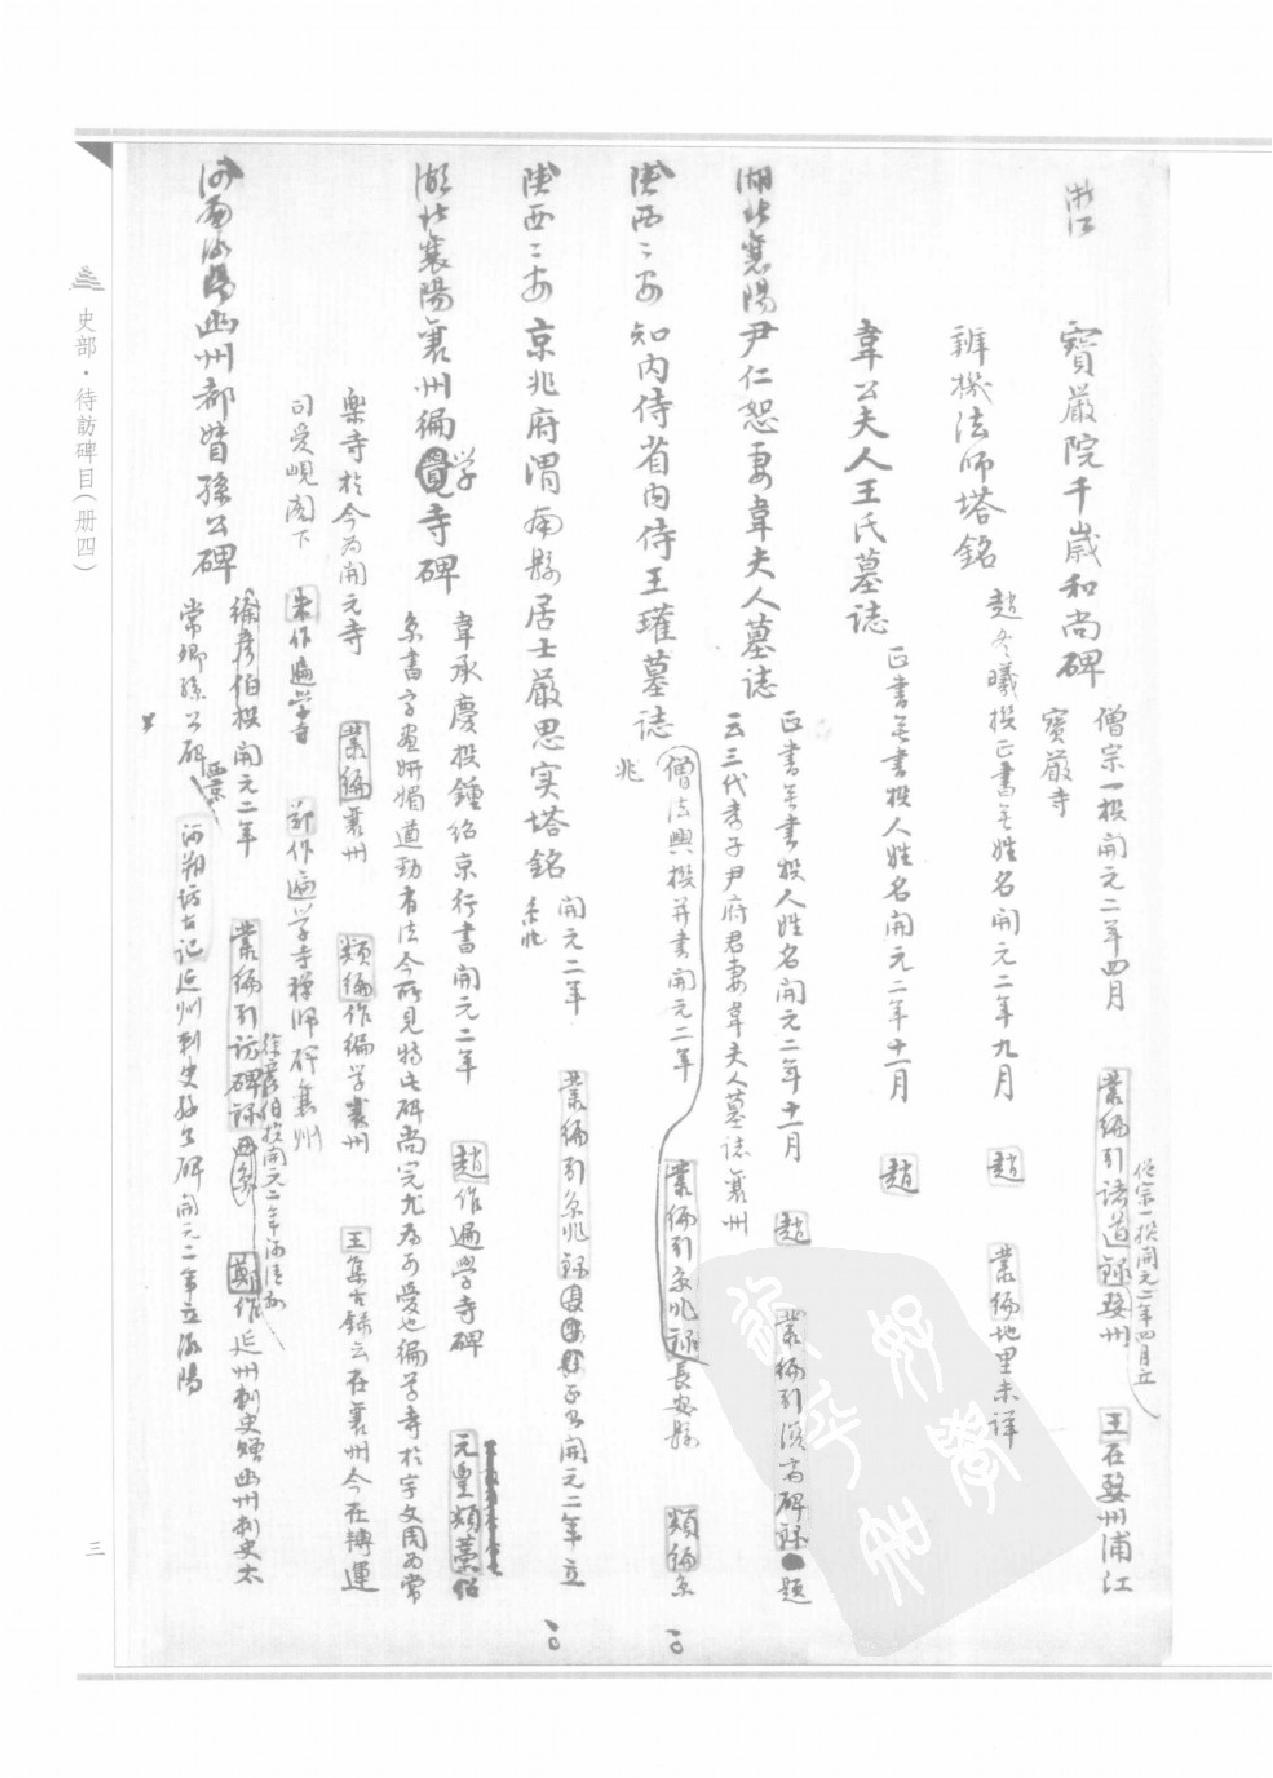 浙江
寶嚴院千歲和尚碑
僧宗一撰開元二年四月 叢編引諸道錄婺州 王在婺州浦江
寶嚴寺
僧宗一撰開元二年四月立
辨機法師塔銘
趙冬曦撰正書無姓名開元二年九月 趙 叢編地里未詳
韋公夫人王氏墓誌
正書無書撰人姓名開元二年十一月 趙
湖北襄陽尹仁恕妻韋夫人墓誌
正書無書撰人姓名開元二年十一月 趙 叢編引 碑錄 題
云三代孝子尹府君妻韋夫人墓誌襄州
陝西〻安知內侍省內侍王瓘墓誌
僧法興撰并書開元二年 叢編引京兆錄長安縣 類編京
兆
陝西〻安京兆府渭南縣居士嚴思实塔銘
開元二年 叢編引京兆錄 正書開元二年立
京兆
湖北襄陽襄州徧覺寺碑
学
韋承慶撰鍾紹京行書開元二年 趙作遍學寺碑 元豐類藁
京書字畫妍媚遒勁有法今所見特此碑尚完尤為可愛也徧学寺於宇文周為常
樂寺於今為開元寺 叢編襄州 類編作徧学襄州 王集古錄云在襄州今在轉運
司愛峴閣下 朱作遍學寺 鄭作遍学寺禪師碑襄州
河南 陽幽州都督孫公碑
徐彥伯撰開元二年 叢編引訪碑錄 鄭作延州刺史贈幽州刺史太
徐彥伯撰開元二年
常卿孫公碑 西京 河朔訪古記延州刺史孫公碑開元二年立 陽
史部·待訪碑目（册四）
三